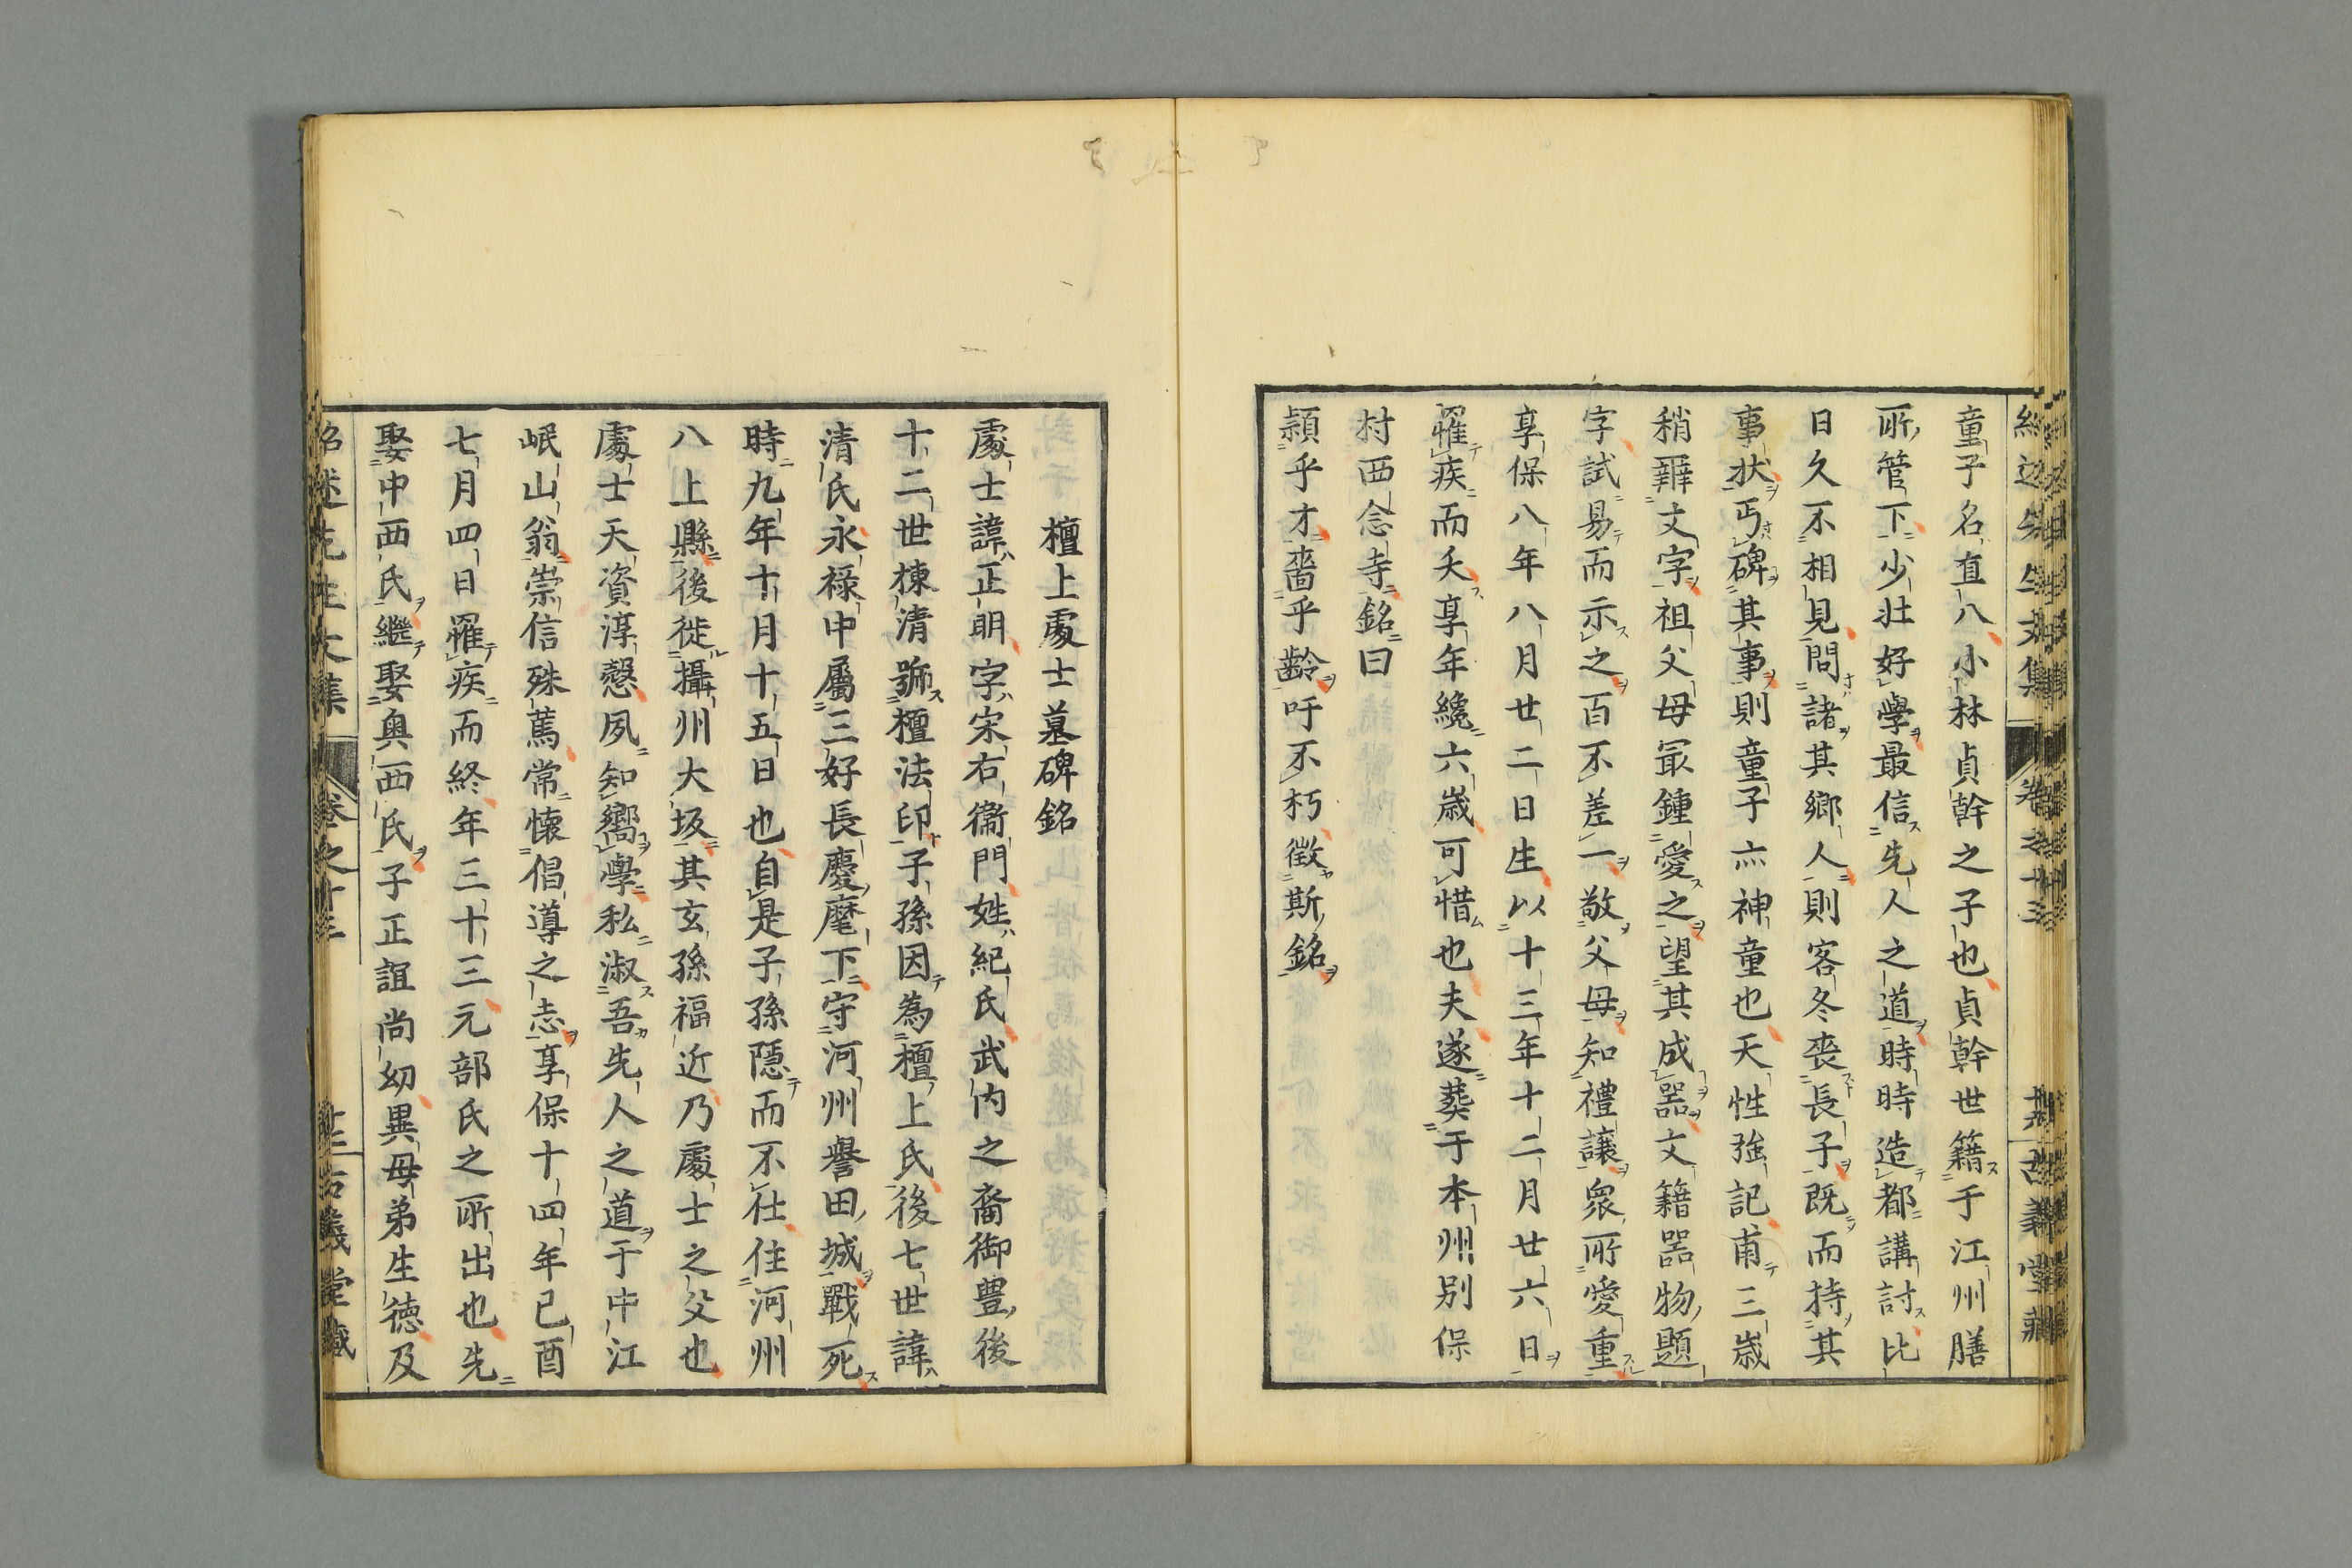 童子名直八小林貞幹之子也貞幹世籍于江州膳
所管下少壯好學最信先人之道時時造都講討比
日久不相見問諸其鄉人則客冬喪長子既而持其
事狀丐碑其事則童子亦神童也天性強記甫三歲
稍辨文字祖父母最鍾愛之望其成器文籍器物題
字試易而示之百不差一敬父母知禮讓衆所愛重
享保八年八月廿二日生以十三年十二月廿六日
罹疾而夭享年纔六歲可惜也夫遂葬于本州別保
村西念寺銘曰
穎乎才嗇乎齡吁不朽徵斯銘
檀上處士墓碑銘
處士諱正明字宋右衞門姓紀氏武内之裔御豊後
十二世棟清號檀法印子孫因為檀上氏後七世諱
清氏永祿中屬三好長慶麾下守河州譽田城戰死
時九年十月十五日也自是子孫隱而不仕住河州
八上縣後徙攝州大坂其玄孫福近乃處士之父也
處士天資淳愨夙知嚮學私淑吾先人之道于中江
岷山翁崇信殊篤常懷倡導之志享保十四年己酉
七月四日罹疾而終年三十三元部氏之所出也先
娶中西氏繼娶奥西氏子正誼尚幼異母弟生德及
紹述先生文集 卷之十三 古義堂藏